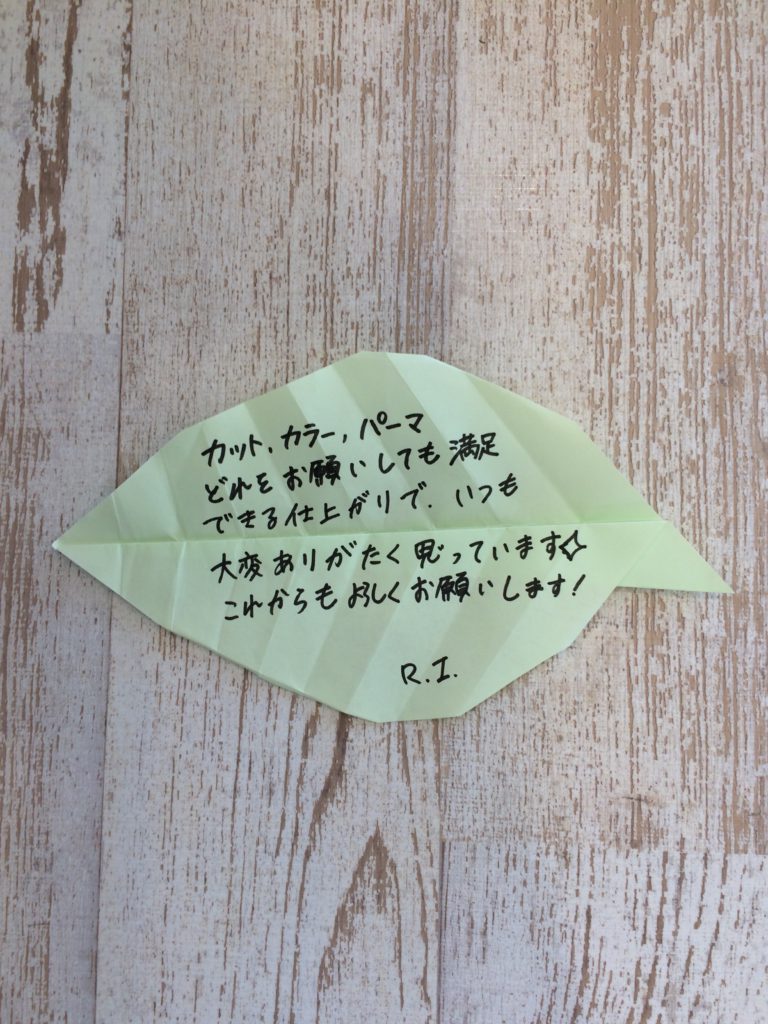 カット、カラー、パーマ
どれをお願いしても満足
できる仕上がりで、いつも
大変ありがたく思っています☆
これからもよろしくお願いします！
R.I.